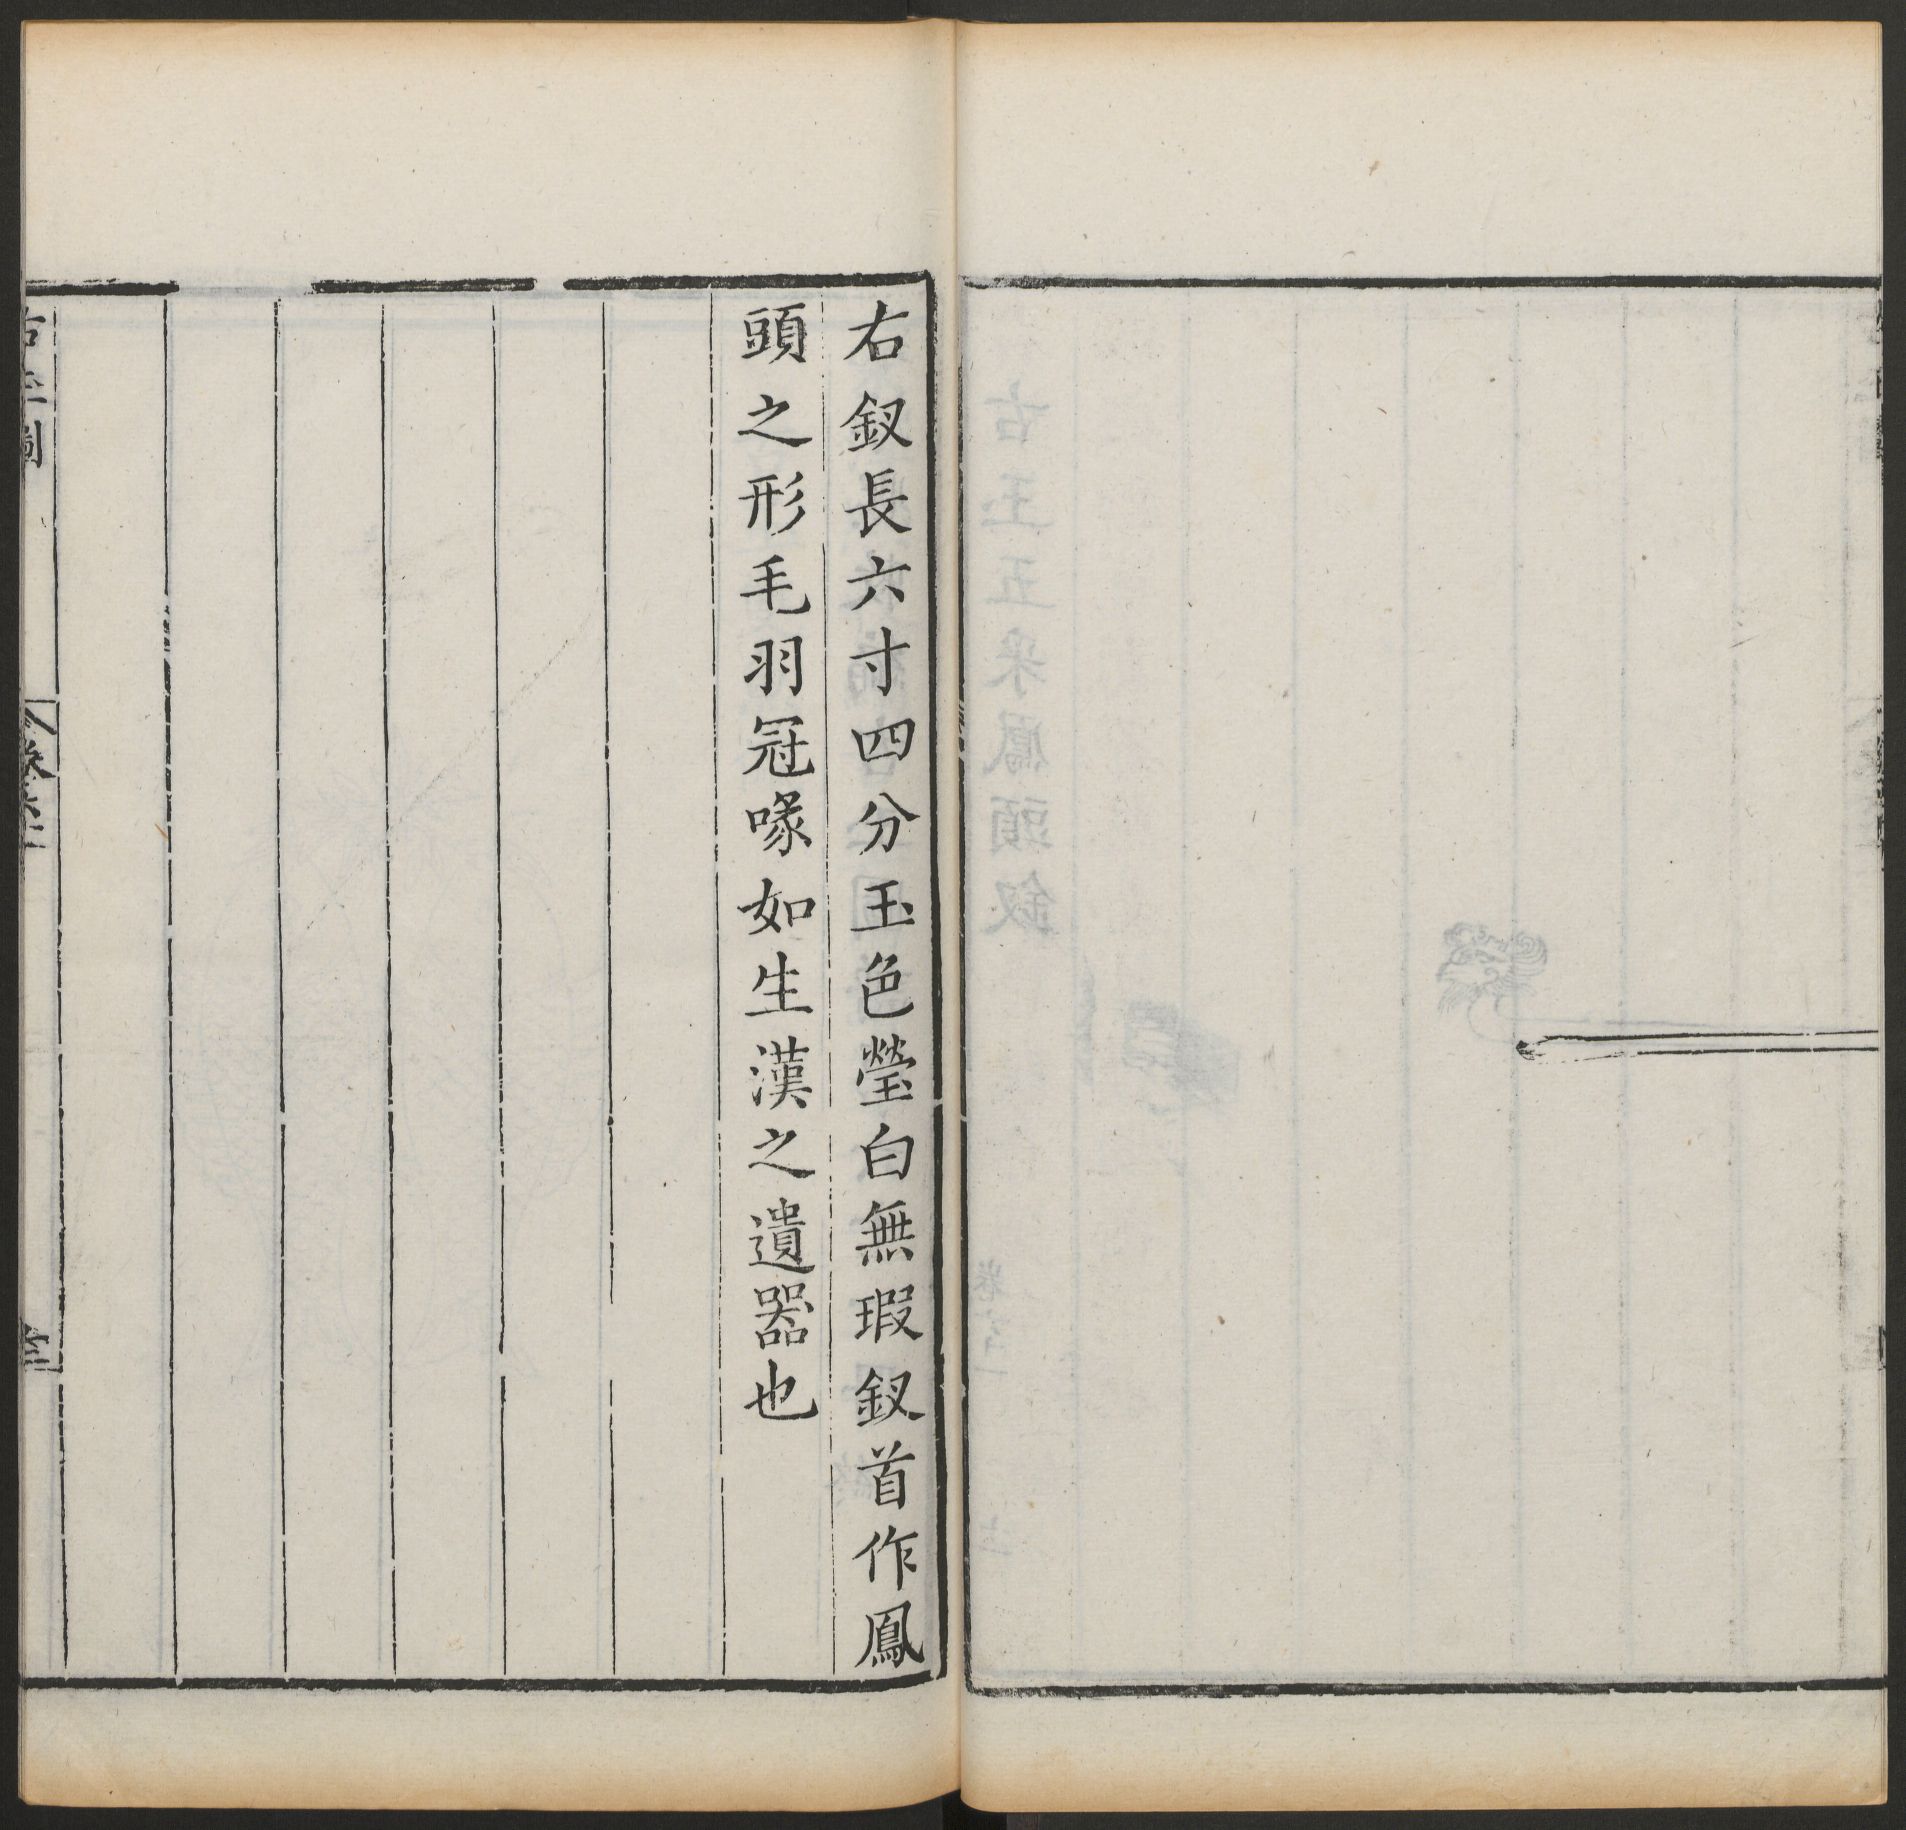 右釵長六寸四分玉色瑩白無瑕釵首作鳳
頭之形毛羽冠喙如生漢之遺器也